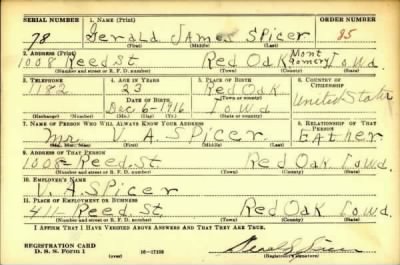 SERIAL NUMBER 1. NAME (Print) ORDER NUMBER
78 Gerald James Spicer 85
(First) (Middle) (Last)
2. ADDRESS (Print)
1008 Reed St Red Oak Montgomery Iowa
(Number and street or R. F. D. number) (Town) (County) (State)
3. TELEPHONE 4. AGE IN YEARS 5. PLACE OF BIRTH 6. COUNTRY OF CITIZENSHIP
1182 23 Red Oak
DATE OF BIRTH (Town or county) United States
Dec. 6-1916 Iowa
(Exchange) (No.) (Mo.) (Day) (Yr.) (State or country)
7. NAME OF PERSON WHO WILL ALWAYS KNOW YOUR ADDRESS 8. RELATIONSHIP OF THAT PERSON
Mr. V. A. Spicer Father
(Mr., Mrs., Miss) (First) (Middle) (Last)
9. ADDRESS OF THAT PERSON
1008 Reed St Red Oak Iowa
(Number and street or R. F. D. number) (Town) (County) (State)
10. EMPLOYER'S NAME
V. A. Spicer
11. PLACE OF EMPLOYMENT OR BUSINESS
411 Reed St. Red Oak Iowa
(Number and street or R. F. D. number) (Town) (County) (State)
I AFFIRM THAT I HAVE VERIFIED ABOVE ANSWERS AND THAT THEY ARE TRUE.
REGISTRATION CARD
D. S. S. Form 1 (over) 16-17105